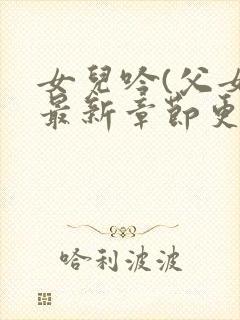 女兒吟(父女
最新章節更
哈利波波